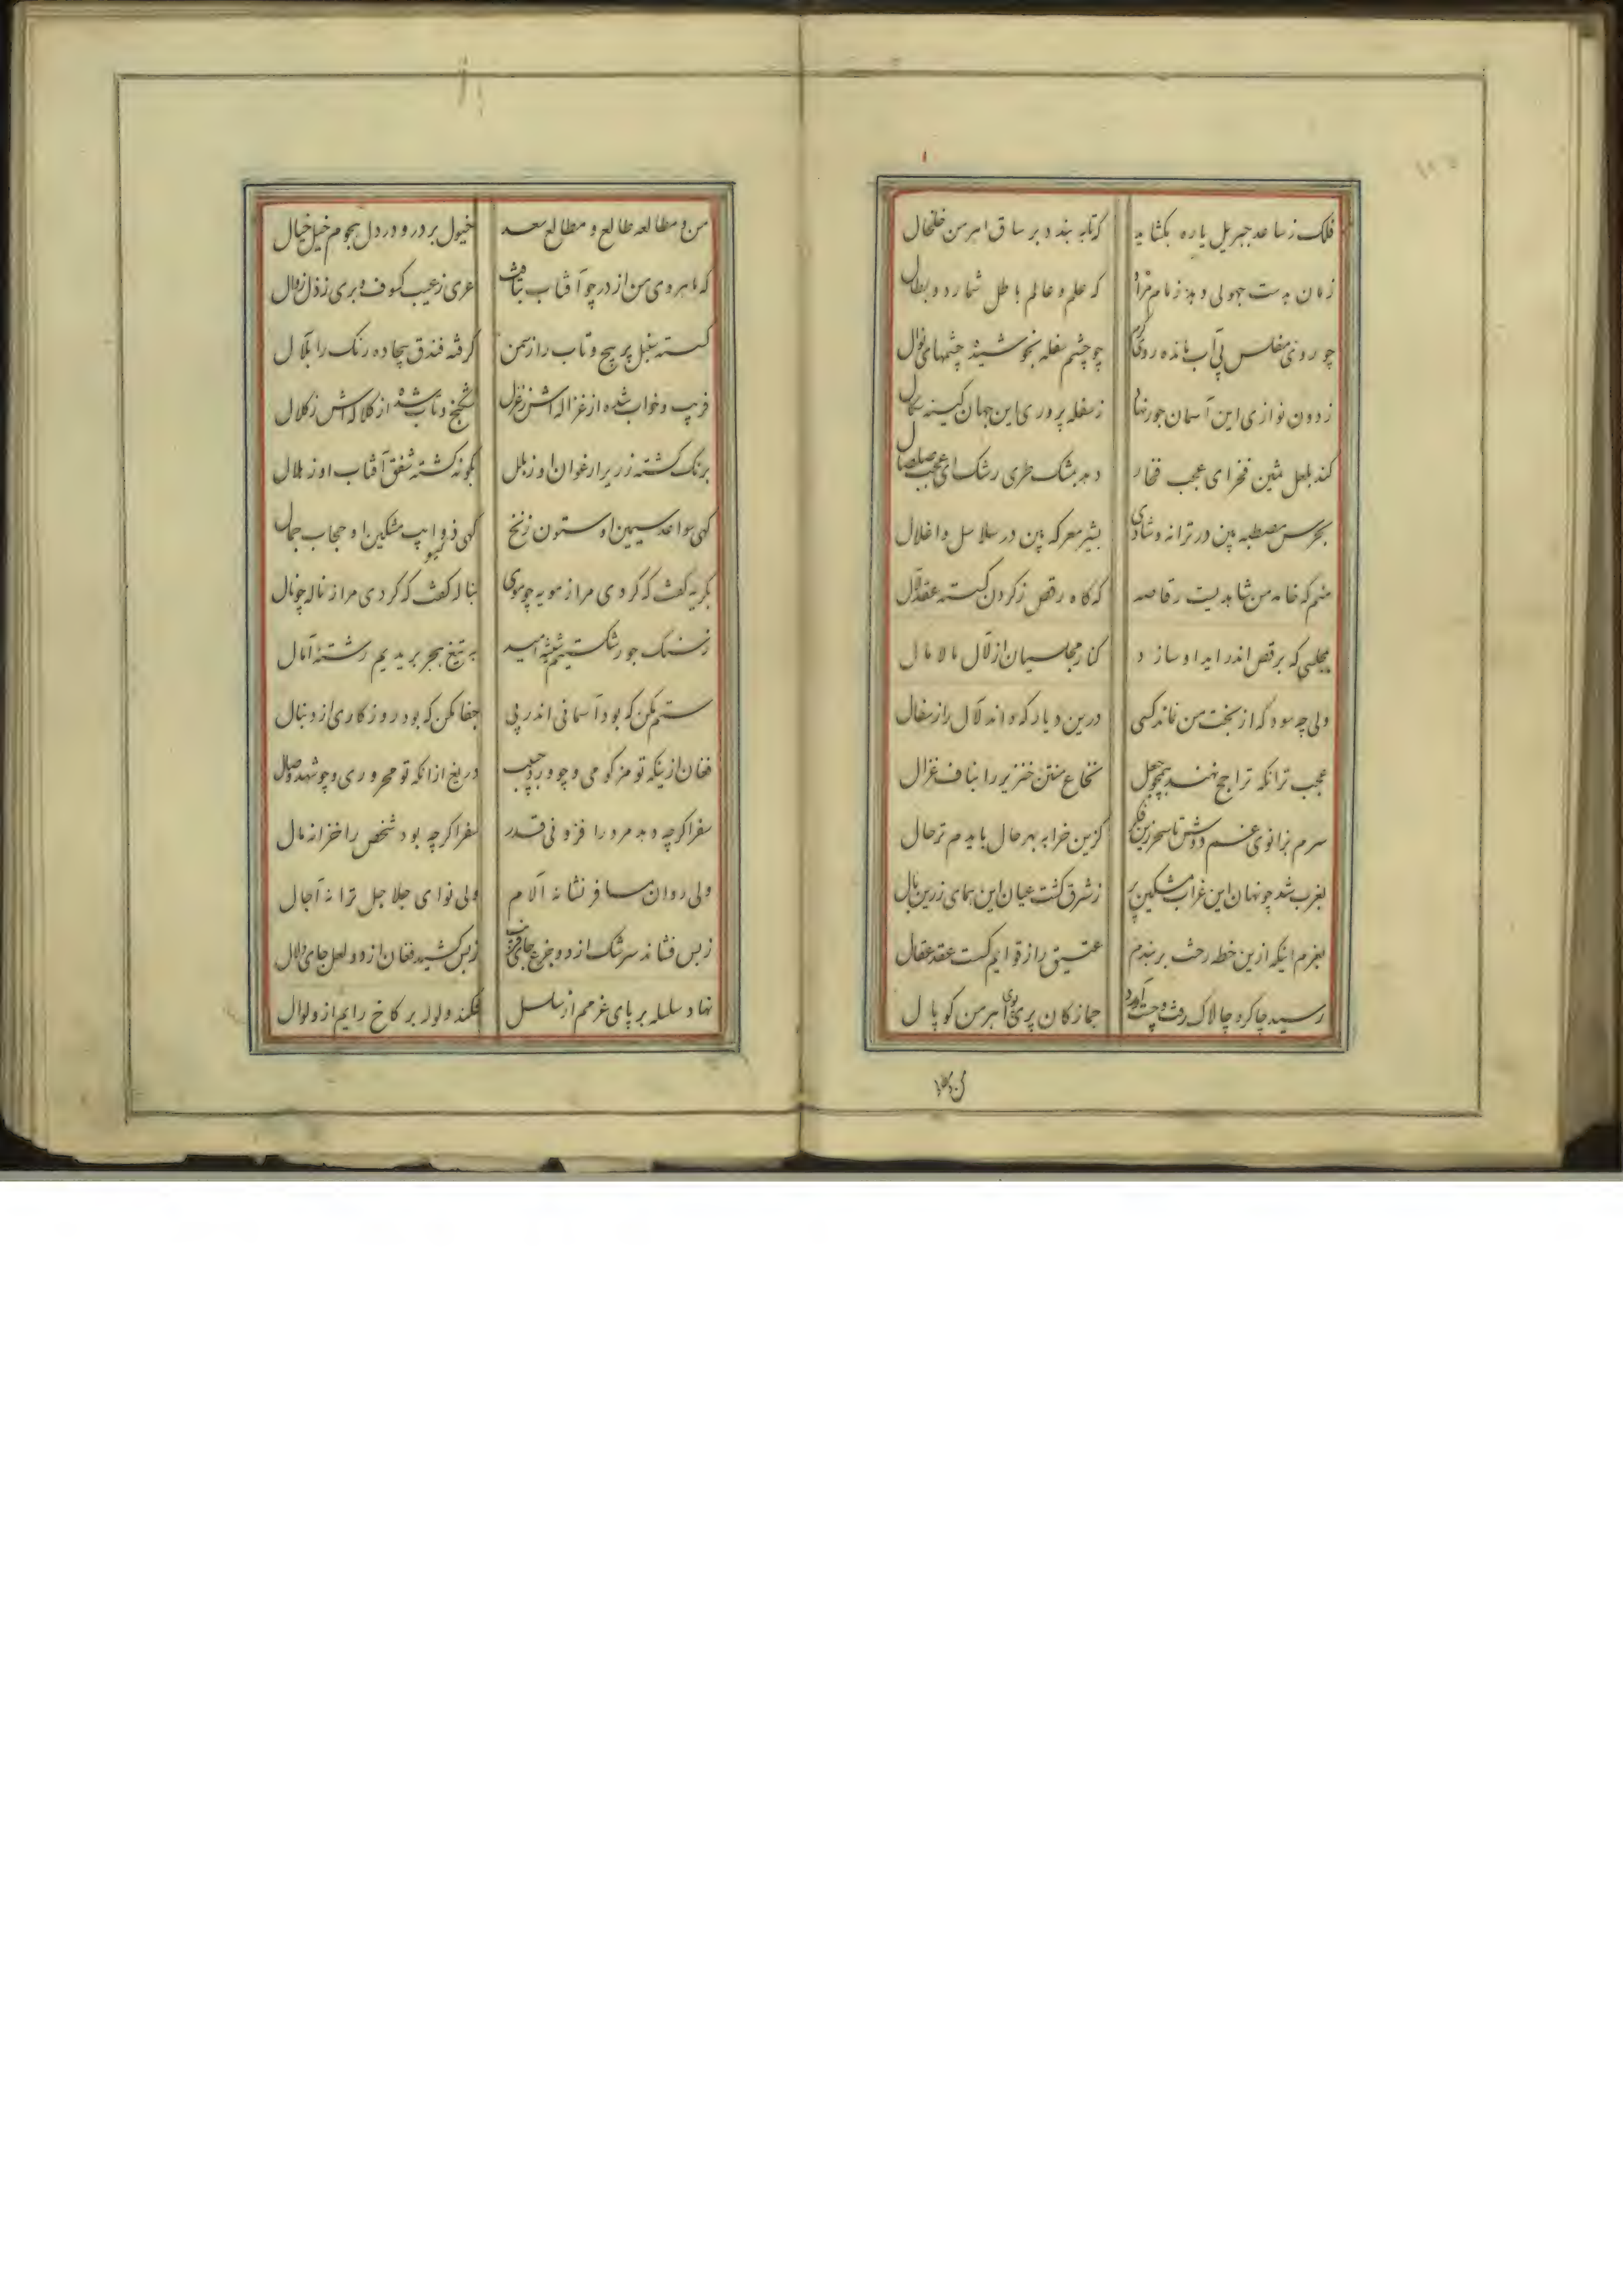 فلک ز ساعد جبریل یاره بکشاید کزتابه بندد بر ساق اهرمن خلخال
زمان بدست جهولی دهد زمام مراد که علم و عالم باطل شمارد و بطال
چو روی مفلس بی آب مانده روی کرم چو چشم سفله نجوشیده چشمهای نوال
ز دون نوازی این آسمان جور نهاد ز سفله پروری این جهان کینه سکال
کند بلعل ثمین فخر ای عجب فخار دهد بمشک طری رشک ای عجب صلصال
بخرس مصطبه بین در ترانه و شادی بشیر معرکه بین در سلاسل و اغلال
منم که خامه من شاهدیست رقاصه که گاه رقص ز گردن گسسته عقد لآل
بمجلسی که برقص اندر آید او سازد کنار مجلسیان از لآل مالامال
ولی چه سود که از بخت من نماند کسی درین دیار که داند لآل را ز سفال
عجب ترانکه ترا جح نهند همچو جعل نخاع منتن خنزیر را بناف غزال
سرم بزانوی غم دوش تا سحر زین فکر کزین خرابه بهر حال بایدم ترحال
بغرب شد چو نهان این غراب مشکین پر ز شرق کشت عیان این همای زرین بال
بعزم اینکه ازین خطه رخت بربندم عتیق را ز قوایم کسست عقد عقال
رسید چاکر و چالاک رفت و چست آورد جمازکان پری پوی اهرمن کوپال
من و مطالعه طالع و مطالع سعد خیول بر در و در دل هجوم خیل خیال
که ماهروی من از در چو آفتاب بتافت عری ز عیب کسوف و بری ز ذل زوال
کسسته سنبل پر پیچ و تاب را ز سمن گرفته فندق بیجاده رنک را بلآل
فریب و خواب شده از غزاله اش ز غزل شکنج و تاب شده از کلاله اش ز کلال
برنک کشته زریر ارغوان او ز بلل بگونه کشته شفق آفتاب او ز هلال
کهی سواعد سیمین او ستون زنخ کهی ذوایب مشکین او حجاب جمال
بگریه گفت که کردی مرا ز مویه چو موی بناله گفت که کردی مرا ز ناله چو نال
ز سنک جور شکستیم شیشه امید به تیغ هجر بریدیم رشته آمال
ستم مکن که بود آسمانی اندر پی جفا مکن که بود روزکاری از دنبال
فغان ازینکه تو مزکومی و چو ورد حبیب دریغ ازانکه تو محروری و چو شهد وصال
سفر اکرچه دهد مرد را فزونی قدر سفر اکرچه بود شخص را خزانه مال
ولی روان مسافر نشانه آلام ولی نوای جلاجل ترانه آجال
ز بس فشاند سرشک از دو جزع جای ز بس کشید فغان از دو لعل جای زلال
نهاد سلسله بر پای عزمم از سلسل فکند ولوله بر کاخ رایم از ولوال